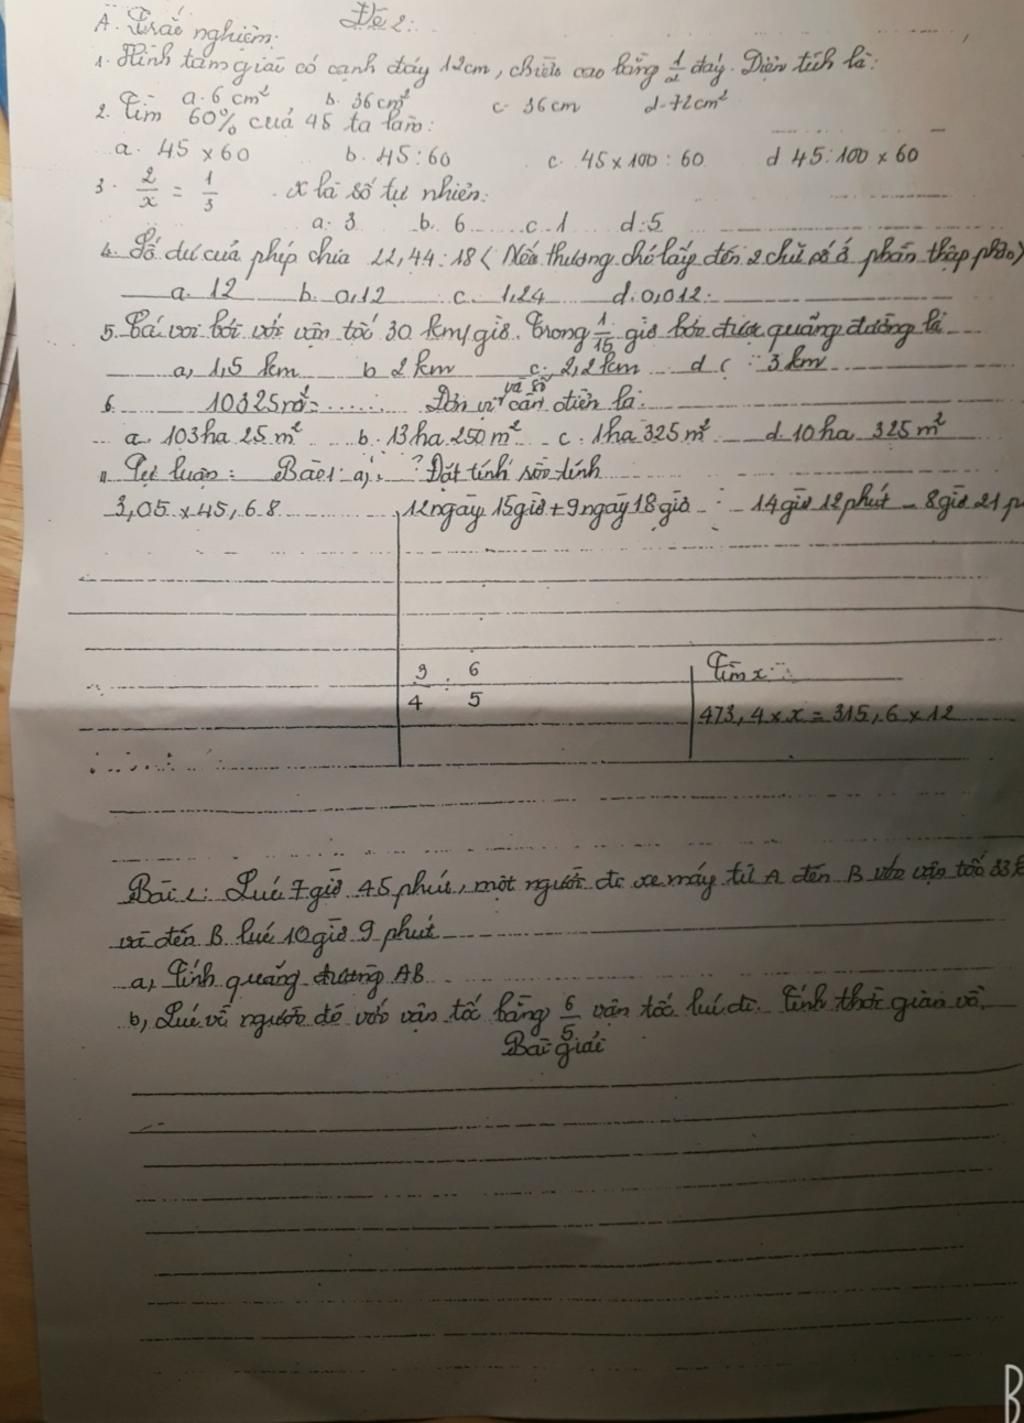 Đề 2:
A. Trắc nghiệm:
1. Hình tam giác có cạnh đáy 12cm, chiều cao bằng 1/2 đáy. Diện tích là:
a. 6 cm² b. 36cm² c. 36cm d. 72cm²
2. Tìm 60% của 45 ta làm:
a. 45 x 60 b. 45 : 60 c. 45 x 100 : 60 d 45 : 100 x 60
3. 2/x = 1/3 . x là số tự nhiên:
a. 3 b. 6 c. 1 d: 5
4. Số dư của phép chia 22,44 : 18 ( Nếu thương chỉ lấy đến 2 chữ số ở phần thập phân)
a. 12 b. 0,12 c. 1,24 d. 0,012.
5. Cá voi bơi với vận tốc 30 km/giờ. Trong 1/15 giờ bơi được quãng đường là
a, 1,5 km b 2 km c. 2,2 km d 3 km
6. 10325m² = ....... Đơn vị và số cần điền là:
a. 103ha 25 m² b. 13ha 250 m² c. 1ha 325 m² d. 10ha 325 m²
Tự luận: Bài 1: a, Đặt tính rồi tính
3,05 x 45,68 12 ngày 15 giờ + 9 ngày 18 giờ 14 giờ 12 phút - 8 giờ 21 p
9 6 Tìm x:
4 5 473,4 x x = 315,6 x 12
Bài 2: Lúc 7 giờ 45 phút, một người đi xe máy từ A đến B với vận tốc 33
và đến B lúc 10 giờ 9 phút
a, Tính quãng đường AB
b, Lúc về người đó với vận tốc bằng 6/5 vận tốc lúc đi. Tính thời gian về.
Bài giải
B